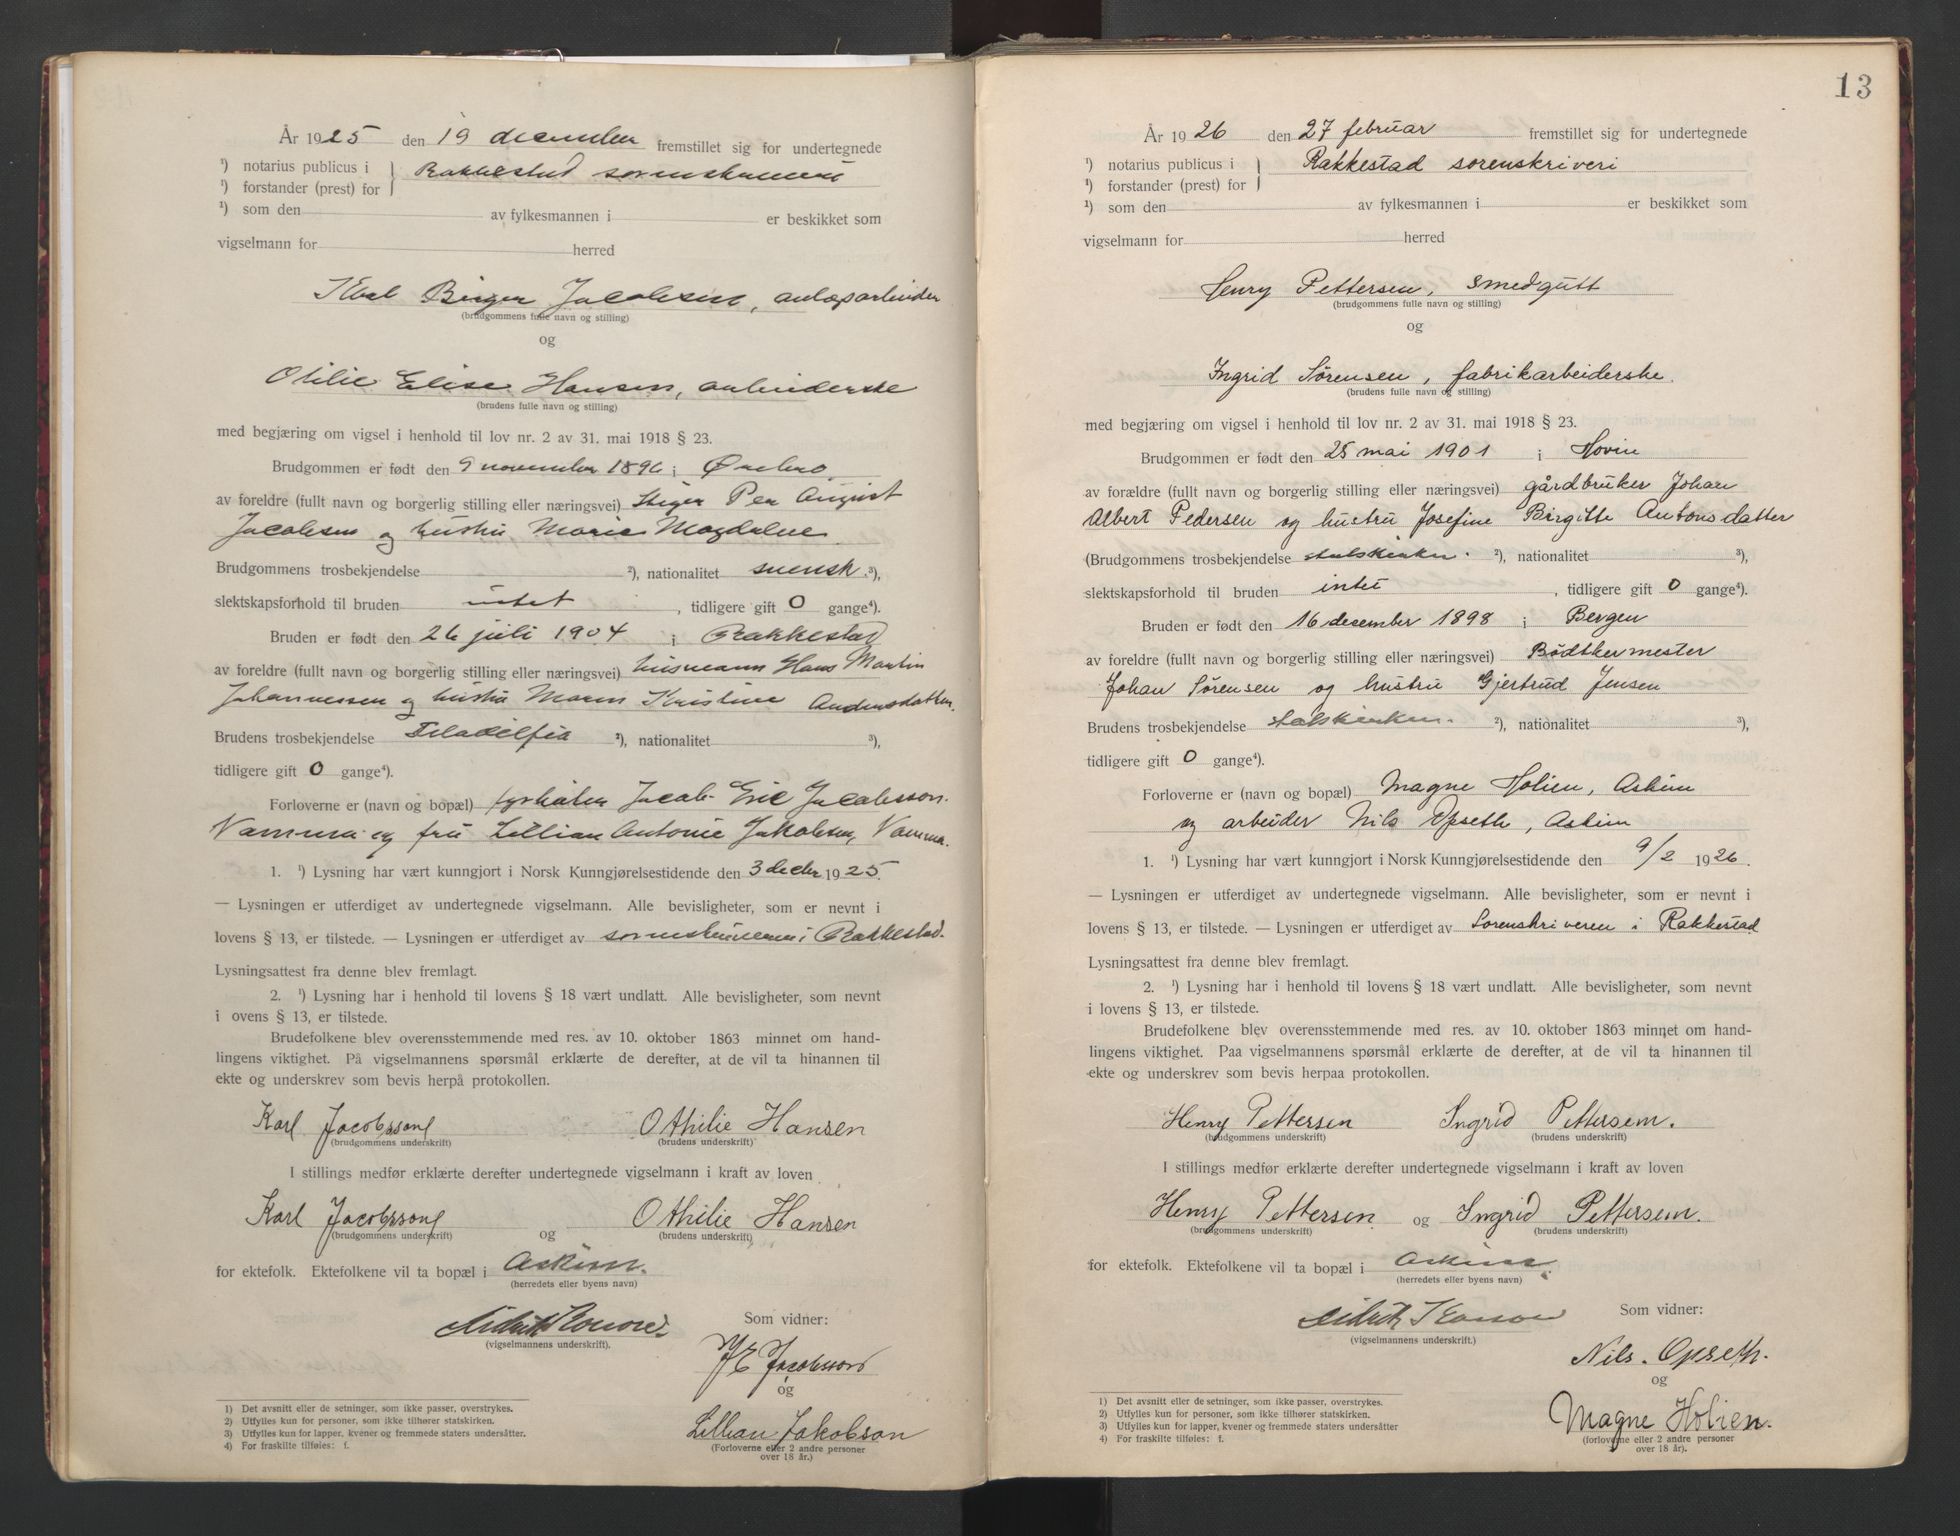 År 1925 den 19 december fremstillet sig for undertegnede
¹) notarius publicus i
¹) forstander (prest) for
Rakkestad sorenskriveri
¹) som den av fylkesmannen i er beskikket som
vigselmann for herred
Karl Birger Jacobsen, anlægsarbeider
(brudgommens fulle navn og stilling)
og
Otilie Elise Hansen, arbeiderske
(brudens fulle navn og stilling)
med begjæring om vigsel i henhold til lov nr. 2 av 31. mai 1918 § 23.
Brudgommen er født den 9 november 1896 i Ørebro
av foreldre (fullt navn og borgerlig stilling eller næringsvei) Stiger Per August
Jacobsen og hustru Marie Magdalene
Brudgommens trosbekjendelse ²), nationalitet svensk ³),
slektskapsforhold til bruden intet, tidligere gift 0 gange⁴).
Bruden er født den 26 juli 1904 i Rakkestad
av foreldre (fullt navn og borgerlig stilling eller næringsvei) husmann Hans Martin
Johannessen og hustru Maren Kristine Andersdatter.
Brudens trosbekjendelse Filadelfia ²), nationalitet ³),
tidligere gift 0 gange⁴).
Forloverne er (navn og bopæl) fyrbøter Jacob Eric Jacobsson.
Vamma og fru Lillian Antonie Jakobsen, Vamma.
1. ¹) Lysning har vært kunngjort i Norsk Kunngjørelsestidende den 3 decbr 1925.
— Lysningen er utferdiget av undertegnede vigselmann. Alle bevisligheter, som er nevnt i
lovens § 13, er tilstede. — Lysningen er utferdiget av sorenskriveren i Rakkestad.
Lysningsattest fra denne blev fremlagt.
2. ¹) Lysning har i henhold til lovens § 18 vært undlatt. Alle bevisligheter, som nevnt
i ovens § 13, er tilstede.
Brudefolkene blev overensstemmende med res. av 10. oktober 1863 minnet om hand-
lingens viktighet. På vigselmannens spørsmål erklærte de derefter, at de vil ta hinannen til
ekte og underskrev som bevis herpå protokollen.
Karl Jacobsson Othilie Hansen
(brudgommens underskrift) (brudens underskrift)
I stillings medfør erklærte derefter undertegnede vigselmann i kraft av loven
Karl Jacobsson og Othilie Hansen
(brudgommens underskrift) (brudens underskrift)
for ektefolk. Ektefolkene vil ta bopæl i Askim.
(herredets eller byens navn)
(vigselmannens underskrift).
Som vidner:
J E Jacobsson
og
Lillian Jakobson
(Forloverne eller 2 andre personer
over 18 år.)
1) Det avsnitt eller de setninger, som ikke passer, overstrykes.
2) Utfylles kun for personer, som ikke tilhører statskirken.
3) Utfylles kun for lapper, kvener og fremmede staters undersåtter.
4) For fraskilte tilføies: f.
13
År 1926 den 27 februar fremstillet sig for undertegnede
¹) notarius publicus i
¹) forstander (prest) for
Rakkestad sorenskriveri
¹) som den av fylkesmannen i er beskikket som
vigselmann for herred
Henry Pettersen, smedgutt
(brudgommens fulle navn og stilling)
og
Ingrid Sørensen, fabrikarbeiderske.
(brudens fulle navn og stilling)
med begjæring om vigsel i henhold til lov nr. 2 av 31. mai 1918 § 23.
Brudgommen er født den 25 mai 1901 i Hovin
av forældre (fullt navn og borgerlig stilling eller næringsvei) gårdbruker Johan
Albert Pedersen og hustru Josefine Birgitte Antonsdatter
(Brudgommens trosbekjendelse statskirken. ²), nationalitet ³),
slektskapsforhold til bruden intet, tidligere gift 0 gange⁴).
Bruden er født den 16 desember 1898 i Bergen
av foreldre (fullt navn og borgerlig stilling eller næringsvei) Bødtkermester
Johan Sørensen og hustru Gjertrud Jensen
Brudens trosbekjendelse statskirken. ²), nationalitet ³),
tidligere gift 0 gange⁴).
Forloverne er (navn og bopæl) Magne Holien, Askim
og arbeider Nils Opseth, Askim
1. ¹) Lysning har vært kunngjort i Norsk Kunngjørelsestidende den 9/2 1926.
— Lysningen er utferdiget av undertegnede vigselmann. Alle bevisligheter, som er nevnt i
lovens § 13, er tilstede. — Lysningen er utferdiget av Sorenskriveren i Rakkestad
Lysningsattest fra denne blev fremlagt.
2. ¹) Lysning har i henhold til lovens § 18 vært undlatt. Alle bevisligheter, som nevnt
i lovens § 13, er tilstede.
Brudefolkene blev overensstemmende med res. av 10. oktober 1863 minnet om hand-
lingens viktighet. Paa vigselmannens spørsmål erklærte de derefter, at de vil ta hinannen til
ekte og underskrev som bevis herpaa protokollen.
Henry Pettersen Ingrid Pettersen.
(brudgommens underskrift) (brudens underskrift)
I stillings medfør erklærte derefter undertegnede vigselmann i kraft av loven
Henry Pettersen og Ingrid Pettersen.
(brudgommens underskrift) (brudens underskrift)
for ektefolk. Ektefolkene vil ta bopæl i Askim.
(herredets eller byens navn)
(vigselmannens underskrift.)
Som vidner:
Nils. Opseth.
og
Magne Holien.
(forloverne eller 2 andre personer
over 18 år).
1) Det avsnitt eller de setninger, som ikke passer, overstrykes.
2) Utfylles kun for personer, som ikke tilhører statskirken.
3) Utfylles kun for lapper, kvener og fremmede staters undersåtter
4) For fraskilte tilføies: f.